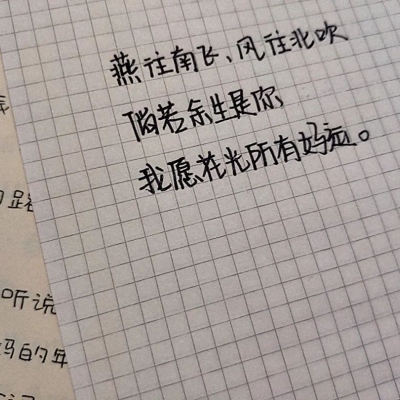 燕往南飞、风往北吹
倘若余生是你
我愿花光所有好运。
听说
的年